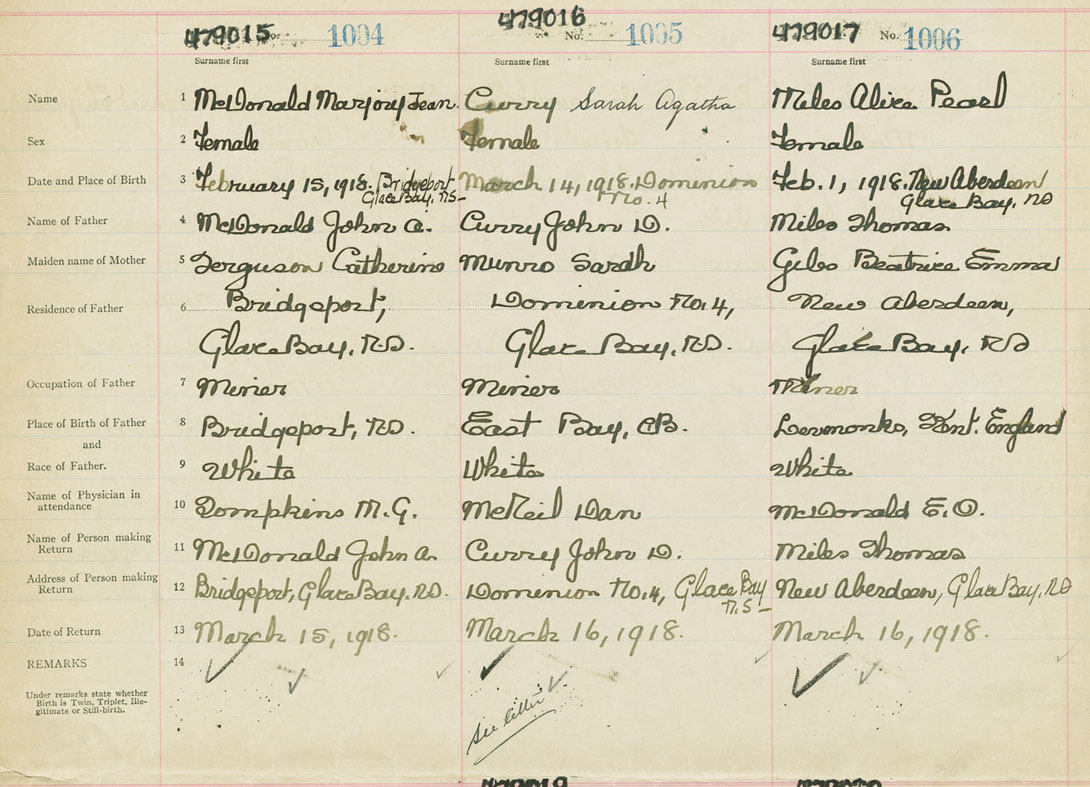 479015 or 1004
479016 No. 1005
479017 No. 1006
Surname first Surname first Surname first
Name 1 McDonald Marjory Jean. Curry Sarah Agatha Miles Alice Pearl
Sex 2 Female Female Female
Date and Place of Birth 3 February 15, 1918. Bridgeport Glace Bay, N.S- March 14, 1918. Dominion No. 4 Feb. 1, 1918. New Aberdeen Glace Bay, NS
Name of Father 4 McDonald John A. Curry John D. Miles Thomas
Maiden name of Mother 5 Ferguson Catherine Munro Sarah Giles Beatrice Emma
Residence of Father 6 Bridgeport, Dominion No. 4, New Aberdeen,
Glace Bay, N.S. Glace Bay, N.S. Glace Bay, NS
Occupation of Father 7 Miner Miner Miner
Place of Birth of Father 8 Bridgeport, N.S. East Bay, CB. Kent. England
and
Race of Father. 9 White White White
Name of Physician in
attendance 10 Tompkins M.G. McNeil Dan McDonald E.O.
Name of Person making
Return 11 McDonald John A. Curry John D. Miles Thomas
Address of Person making
Return 12 Bridgeport, Glace Bay, N.S. Dominion No. 4, Glace Bay N.S- New Aberdeen, Glace Bay, NS
Date of Return 13 March 15, 1918. March 16, 1918. March 16, 1918.
REMARKS 14
Under remarks state whether
Birth is Twin, Triplet, Ille-
gitimate or Still-birth.
See letter